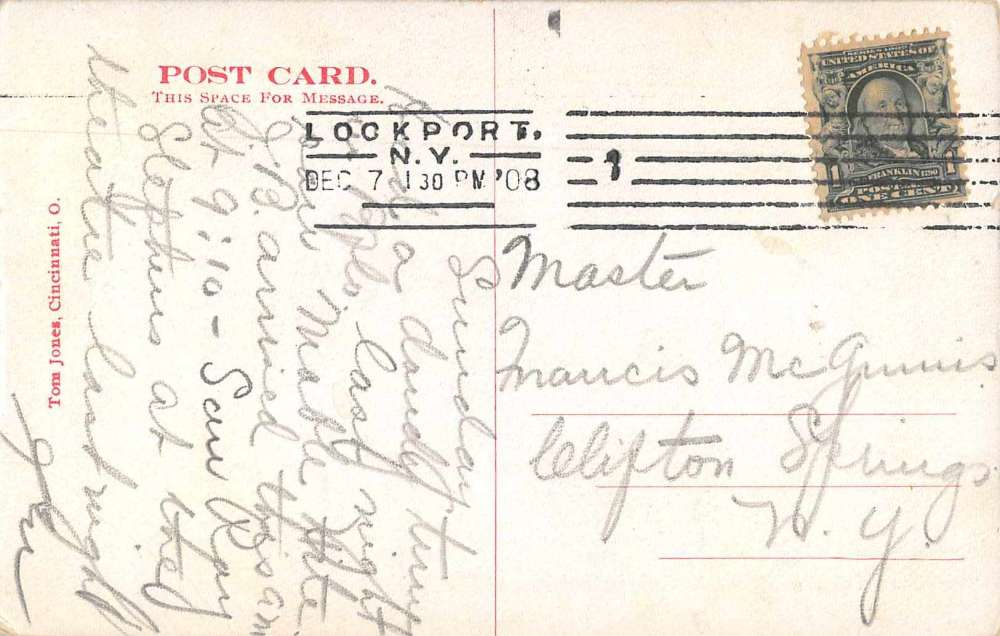 POST CARD.
THIS SPACE FOR MESSAGE.
Tom Jones, Cincinnati, O.
LOCKPORT,
N.Y.
DEC 7 1 30 PM '08
1
SERIES 1902
UNITED STATES OF
AMERICA
FRANKLIN 1790
POSTAGE
ONE CENT
Sunday
a dandy time
last night
Mable
arrived this am
at 9:10 - Saw Ray
Stephens at the
theatre last night
Master
Francis McGinnis
Clifton Springs
N. Y.